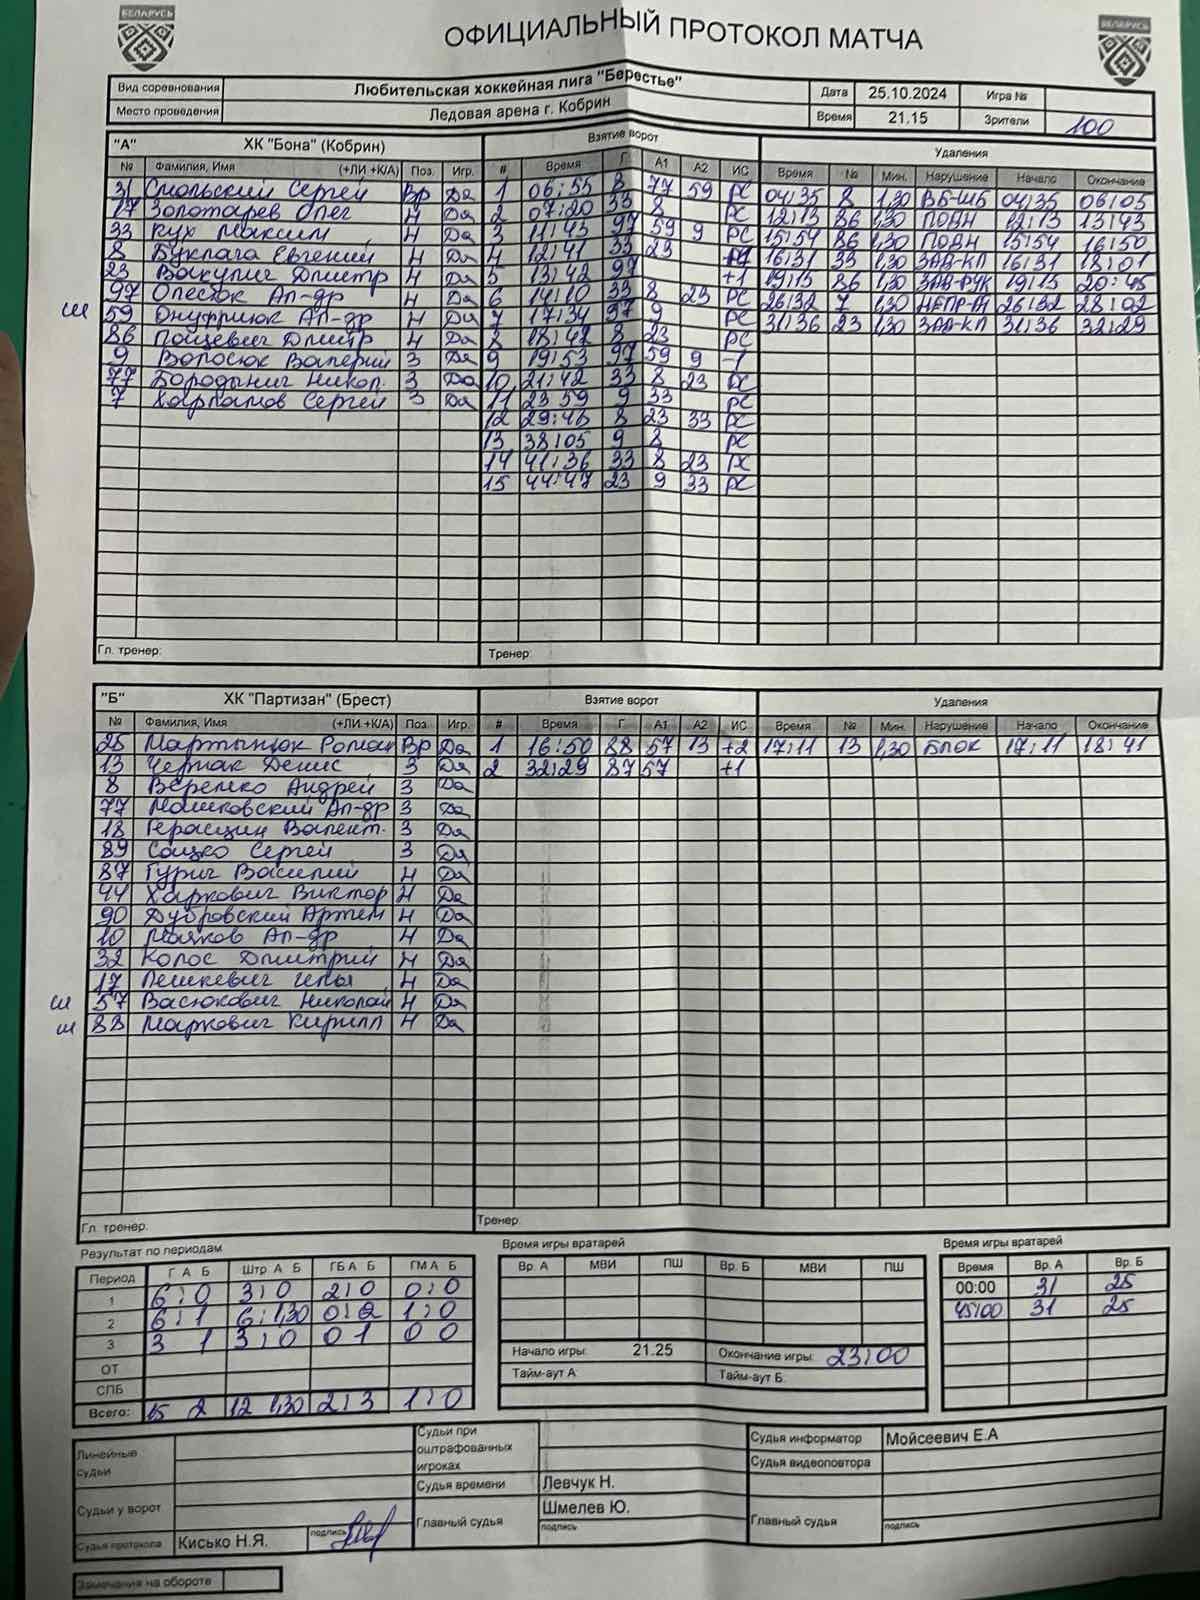 БЕЛАРУСЬ
БЕЛАРУСЬ
ОФИЦИАЛЬНЫЙ ПРОТОКОЛ МАТЧА
Вид соревнования Любительская хоккейная лига "Берестье" Дата 25.10.2024 Игра №
Место проведения Ледовая арена г. Кобрин Время 21.15 Зрители 100
"А" ХК "Бона" (Кобрин) Взятие ворот Удаления
№ Фамилия, Имя (+ЛИ +К/А) Поз. Игр. # Время Г А1 А2 ИС Время № Мин. Нарушение Начало Окончание
31 Смольский Сергей Вр Да 1 06:55 8 77 59 РС 04:35 8 1,30 ВБ-ШБ 04:35 06:05
17 Золотарев Олег Н Да 2 07:20 33 8 РС 12:13 86 1,30 ПОДН 12:13 13:43
33 Кух Максим Н Да 3 11:43 97 59 9 РС 15:54 86 1,30 ПОДН 15:54 16:50
8 Буклага Евгений Н Да 4 12:41 33 23 16:31 33 1,30 ЗАД-КЛ 16:31 18:01
23 Вакулич Дмитр Н Да 5 13:42 97 +1 19:15 86 1,30 ЗАД-РУК 19:15 20:45
97 Олесюк Ал-др Н Да 6 14:10 33 8 23 РС 26:32 7 1,30 26:32 28:02
ш 59 Онуфрюк Ал-др Н Да 7 17:34 97 9 РС 31:36 23 1,30 ЗАД-КЛ 31:36 32:29
86 Пацевич Дмитр Н Да 8 18:42 8 23 РС
9 Волосюк Валерий З Да 9 19:53 97 59 9 -1
77 Бородынич Никол. З Да 10 21:42 33 8 23 РС
7 Харламов Сергей З Да 11 23:59 9 33 РС
12 29:46 8 23 33 РС
13 38:05 9 8 РС
14 41:36 33 8 23 РС
15 44:47 23 9 33 РС
Гл. тренер: Тренер:
"Б" ХК "Партизан" (Брест) Взятие ворот Удаления
№ Фамилия, Имя (+ЛИ +К/А) Поз. Игр. # Время Г А1 А2 ИС Время № Мин. Нарушение Начало Окончание
25 Мартынюк Роман Вр Да 1 16:50 88 57 13 +2 17:11 13 1,30 БЛОК 17:11 18:41
13 Черпак Денис З Да 2 32:29 87 57 +1
8 Веремко Андрей З Да
77 Машковский Ал-др З Да
18 Герасцин Валент. З Да
89 Сацко Сергей З Да
87 Гурич Василий Н Да
44 Харкович Виктор Н Да
90 Дубровский Артем Н Да
10 Маяков Ал-др Н Да
32 Колос Дмитрий Н Да
17 Пешкевич Илья Н Да
ш 57 Васюкович Николай Н Да
ш 88 Маркович Кирилл Н Да
Гл. тренер: Тренер:
Результат по периодам Время игры вратарей Время игры вратарей
Период Г А Б Штр. А Б ГБ А Б ГМ А Б Вр. А МВИ ПШ Вр. Б МВИ ПШ Время Вр. А Вр. Б
1 6:0 3:0 2:0 0:0 00:00 31 25
2 6:1 6:1,30 0:2 1:0 45:00 31 25
3 3 1 3:0 0 1 0 0
ОТ Начало игры: 21.25 Окончание игры: 23:00
СПБ Тайм-аут А: Тайм-аут Б:
Всего: 15 2 12 1,30 2:3 1:0
Линейные судьи Судьи при оштрафованных игроках Судья информатор Мойсеевич Е.А
Судья видеоповтора
Судьи у ворот Судья времени Левчук Н.
Главный судья Шмелев Ю. Главный судья
подпись подпись
Судья протокола Кисько Н.Я. подпись
Замечания на обороте